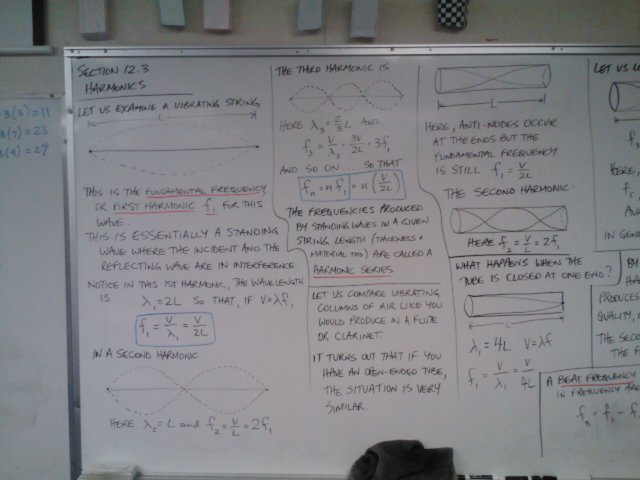 3(5) = 11
3(7) = 23
3(9) = 29
SECTION 12.3
HARMONICS
LET US EXAMINE A VIBRATING STRING
L
THIS IS THE FUNDAMENTAL FREQUENCY
OR FIRST HARMONIC f₁ FOR THIS
WAVE.
THIS IS ESSENTIALLY A STANDING
WAVE WHERE THE INCIDENT AND THE
REFLECTING WAVE ARE IN INTERFERENCE
NOTICE IN THIS 1ST HARMONIC, THE WAVELENGTH
IS λ₁ = 2L SO THAT, IF V = λf,
f₁ = V/λ₁ = V/2L
IN A SECOND HARMONIC
HERE λ₂ = L and f₂ = V/L = 2f₁
THE THIRD HARMONIC IS
HERE λ₃ = 2/3 L AND
f₃ = V/λ₃ = 3V/2L = 3f₁
AND SO ON SO THAT
fₙ = n f₁ = n (V/2L)
THE FREQUENCIES PRODUCED
BY STANDING WAVES IN A GIVEN
STRING LENGTH (THICKNESS +
MATERIAL TOO) ARE CALLED A
HARMONIC SERIES.
LET US COMPARE VIBRATING
COLUMNS OF AIR LIKE YOU
WOULD PRODUCE IN A FLUTE
OR CLARINET.
IT TURNS OUT THAT IF YOU
HAVE AN OPEN-ENDED TUBE,
THE SITUATION IS VERY
SIMILAR.
L
HERE, ANTI-NODES OCCUR
AT THE ENDS BUT THE
FUNDAMENTAL FREQUENCY
IS STILL f₁ = V/2L
THE SECOND HARMONIC
HERE f₂ = V/L = 2f₁
WHAT HAPPENS WHEN THE
TUBE IS CLOSED AT ONE END?
L
λ₁ = 4L V = λf
f₁ = V/λ₁ = V/4L
LET US
HERE,
IN GEN
BY
PRODUCES
QUALITY,
THE SECO
THE F
A BEAT FREQUENCY
IN FREQUENCY ARE
f_B = f₁ - f